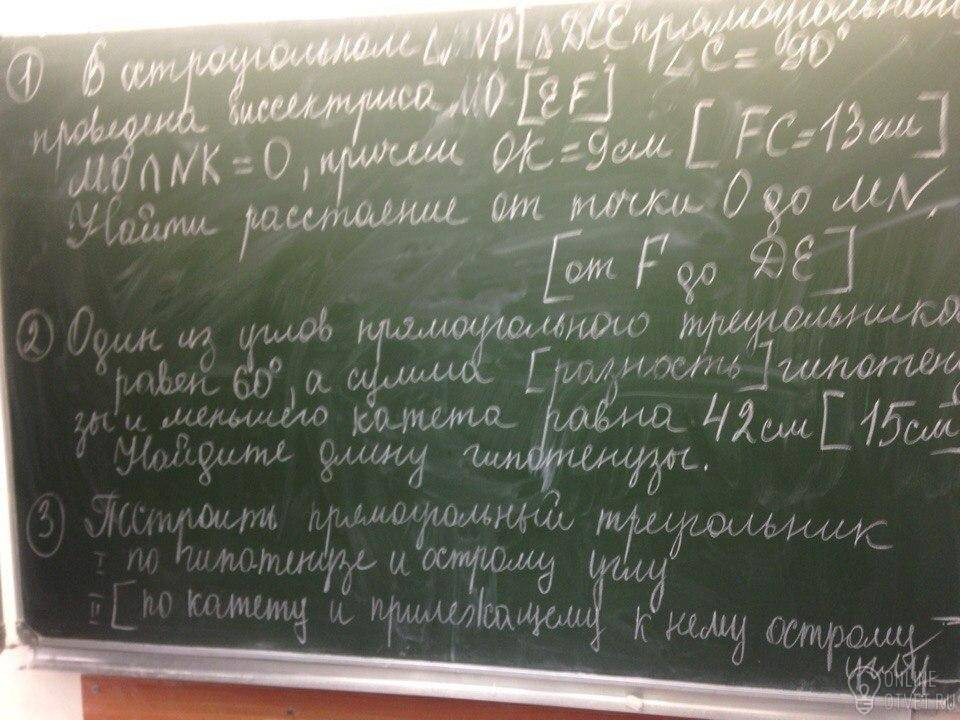 ① В остроугольном △MNP [△DCE прямоугольном
∠C = 90°
проведена биссектриса MO [EF]
MO∩NK=O, причем OK=9см [FC=13см]
Найти расстояние от точки O до MN.
[от F до DE]
② Один из углов прямоугольного треугольника
равен 60°, а сумма [разность] гипотену
зы и меньшего катета равна 42см [15см
Найдите длину гипотенузы.
③ Построить прямоугольный треугольник
I по гипотенузе и острому углу
II [по катету и прилежащему к нему острому
углу
ONLINE
OTVET.RU